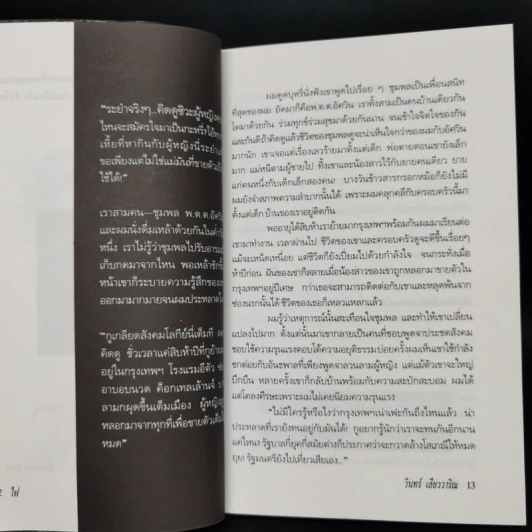 “ระยำจริงๆ...คิดดูซิวะผู้หญิงค
ไหนจะสมัครใจมาเป็นกะหรี่
เหี้ยที่หากินกับผู้หญิงนี่ระยำ
ขอเพียงแต่ไม่ใช่แม่มันที่ขายตัว
ใช้ได้!”
เราสามคน---ชุมพล พ.ต.ต.อัศวิน
และผมนั่งดื่มเหล้าด้วยกันใน
หนึ่ง เราไม่รู้ว่าชุมพลไปรับอารม
เก็บกดมาจากไหน พอเหล้าเข้า
หน้าเขาก็ระบายความรู้สึกของ
ออกมามากมายจนผมประหลาดใ
“กูเกลียดสังคมโลกีย์นี่เต็มที
คิดดู ชั่วเวลาแค่สิบห้าปีที่กูย้าย
อยู่ในกรุงเทพฯ โรงแรมม่านรูด
อาบอบนวด ค็อกเทลเล้านจ์
ลามกผุดขึ้นเต็มเมือง ผู้หญิง
หลอกมาจากทุกที่เพื่อขายตัว
หมด”
ไฟ
ผมดูดบุหรี่นั่งฟังเขาพูดไปเรื่อย ๆ ชุมพลเป็นเพื่อนสนิท
ที่สุดของผม ถัดมาก็คือพ.ต.ต.อัศวิน เราทั้งสามเป็นคนบ้านเดียวกัน
โตมาด้วยกัน ร่วมทุกข์ร่วมสุขมาด้วยกันนาน จนเข้าใจจิตใจของกัน
และกันดี ถ้าคิดดูแล้วชีวิตของชุมพลดูจะน่าเห็นใจกว่าของผมกับอัศวิน
มากนัก เขาเจอแต่เรื่องเลวร้ายมาตั้งแต่เด็ก พ่อตายตอนเขายังเล็ก
มาก แม่หนีตามผู้ชายไป ทิ้งเขาและน้องสาวไว้กับยายคนเดียว ยาย
แก่คนหนึ่งกับเด็กเล็กสองคน! บางวันข้าวสารกรอกหม้อก็ยังไม่มี
ผมยังจำสภาพความลำบากนั้นได้ เพราะผมคลุกคลีกับครอบครัวนี้มา
ตั้งแต่เด็ก บ้านของเราอยู่ติดกัน
พออายุได้สิบห้าเราย้ายมากรุงเทพฯพร้อมกัน ผมมาเรียนต่อ
เขามาทำงาน เวลาผ่านไป ชีวิตของเขาและครอบครัวดูจะดีขึ้นเรื่อยๆ
แม้จะเหน็ดเหนื่อย แต่ชีวิตก็ยังเปี่ยมไปด้วยกำลังใจ จนกระทั่งเมื่อ
ห้าปีก่อน ฝันของเขาก็สลายเมื่อน้องสาวของเขาถูกหลอกมาขายตัวใน
กรุงเทพฯอยู่ปีเศษ กว่าเธอจะสามารถติดต่อกับเขาและหลุดพ้นจาก
ซ่องนรกนั้นได้ ชีวิตของเธอก็เหลวแหลกแล้ว
ผมรู้ว่าเหตุการณ์นั้นสะเทือนใจชุมพล และทำให้เขาเปลี่ยน
แปลงไปมาก ตั้งแต่นั้นมาเขากลายเป็นคนที่ชอบพูดจาประชดสังคม
ชอบใช้ความรุนแรงตอบโต้ความอยุติธรรม บ่อยครั้งผมเห็นเขาใช้กำลัง
ชกต่อยกับอันธพาลที่เพียงพูดจาลวนลามผู้หญิง แต่แม้ตัวเขาจะใหญ่
บึกบึน หลายครั้งเขาก็กลับบ้านพร้อมกับความสะบักสะบอม ผมได้
แต่โคลงศีรษะเพราะผมไม่เคยนิยมความรุนแรง
“ไม่มีใครรู้หรือไงว่ากรุงเทพฯเน่าเฟะกันถึงไหนแล้ว น่า
ประหลาดที่เรายังทนอยู่กับมันได้! กูอยากรู้นักว่าเราจะทนกันอีกนาน
แค่ไหน? รัฐบาลกี่ยุคกี่สมัยต่างก็ประกาศว่าจะกวาดล้างโสเภณีให้หมด
ถุย! รัฐมนตรียังไปเที่ยวเสียเอง...”
วินทร์ เลียววาริณ 13